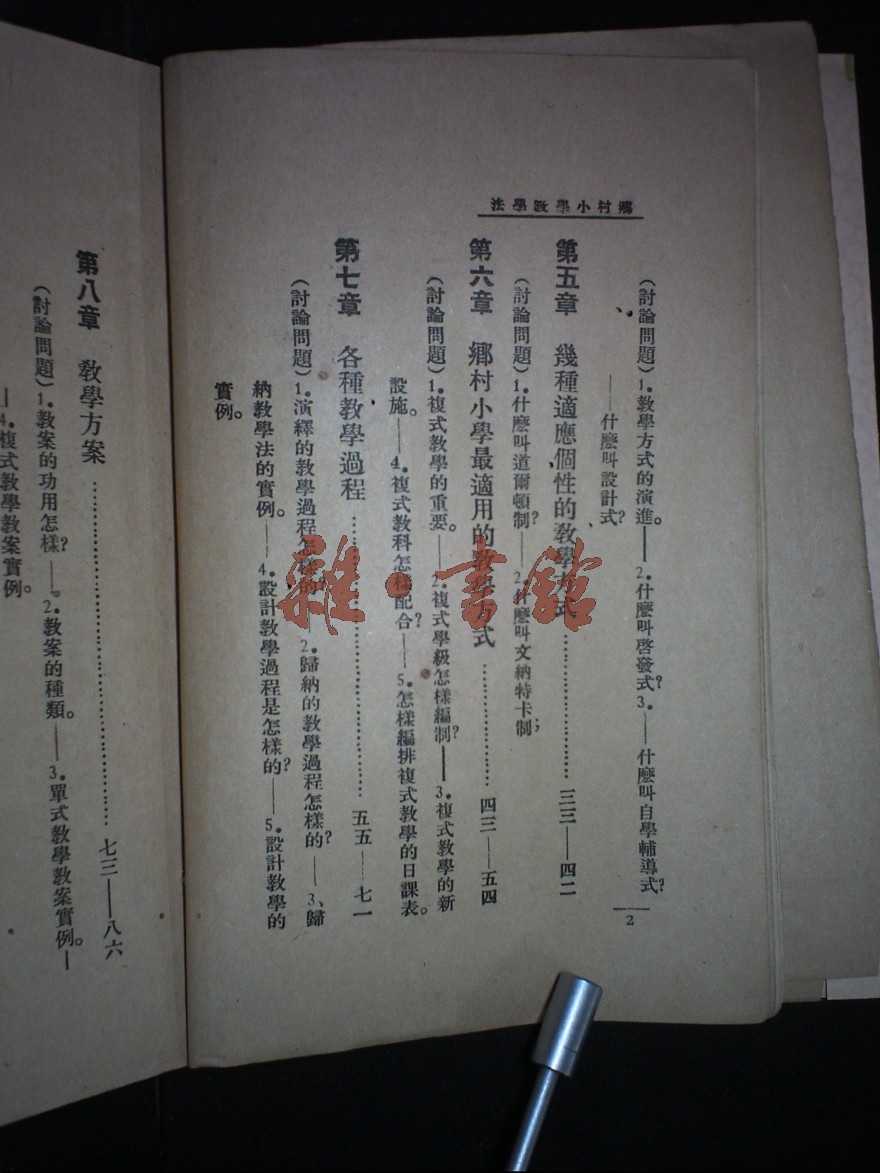 鄉村小學敎學法
(討論問題)1.敎學方式的演進。——2.什麼叫啓發式?3.——什麼叫自學輔導式?
——什麼叫設計式?
第五章 幾種適應個性的敎學方式…………………三三——四二
(討論問題)1.什麼叫道爾頓制?——2.什麼叫文納特卡制;
第六章 鄉村小學最適用的敎學方式………………四三——五四
(討論問題)1.複式敎學的重要。——2.複式學級怎樣編制?——3.複式敎學的新
設施。——4.複式敎科怎樣配合?——5.怎樣編排複式敎學的日課表。
第七章 各種敎學過程…………………………五五——七一
(討論問題)1.演繹的敎學過程怎樣的?——2.歸納的敎學過程怎樣的?——3、歸
納敎學法的實例。——4.設計敎學過程是怎樣的?——5.設計敎學的
實例。
2
第八章 敎學方案…………………………七三——八六
(討論問題)1.敎案的功用怎樣?——2.敎案的種類。——3.單式敎學敎案實例。—
—4.複式敎學敎案實例。
雜·書館